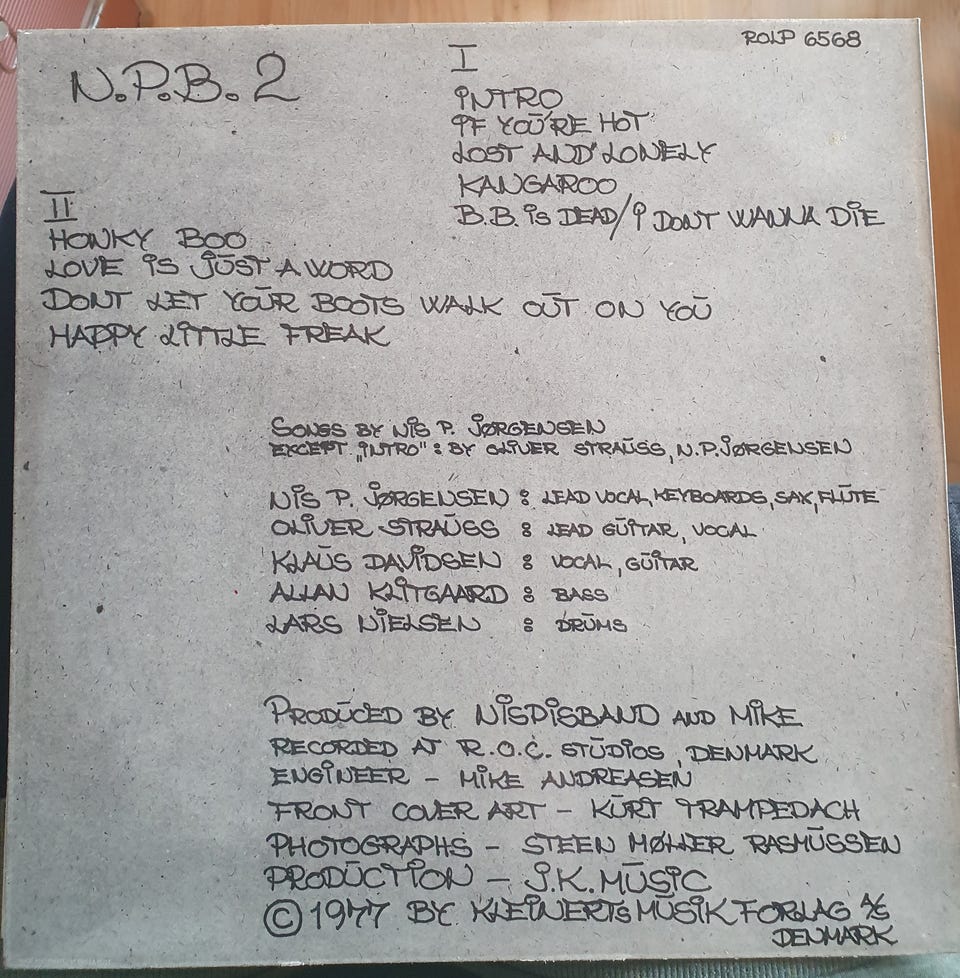 N.P.B. 2
ROLP 6568
I
INTRO
IF YOU'RE HOT
LOST AND LONELY
KANGAROO
B.B. IS DEAD / I DONT WANNA DIE
II
HONKY BOO
LOVE IS JUST A WORD
DONT LET YOUR BOOTS WALK OUT ON YOU
HAPPY LITTLE FREAK
SONGS BY NIS P. JØRGENSEN
EXCEPT „INTRO" : BY OLIVER STRAUSS, N.P.JØRGENSEN
NIS P. JØRGENSEN : LEAD VOCAL, KEYBOARDS, SAX, FLUTE
OLIVER STRAUSS : LEAD GUITAR, VOCAL
KLAUS DAVIDSEN : VOCAL, GUITAR
ALLAN KLITGAARD : BASS
LARS NIELSEN : DRUMS
PRODUCED BY NISPISBAND AND MIKE
RECORDED AT R.O.C. STUDIOS, DENMARK
ENGINEER - MIKE ANDREASEN
FRONT COVER ART - KURT TRAMPEDACH
PHOTOGRAPHS - STEEN MØLLER RASMUSSEN
PRODUCTION - J.K. MUSIC
© 1977 BY KLEINERTS MUSIK FORLAG A/S
DENMARK